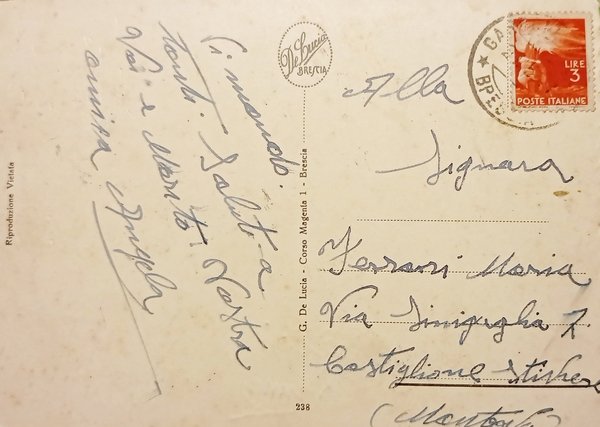 Vi mando
tanti Saluti a
Voi e Marito Vostra
amica Angela
Riproduzione Vietata
De Lucia
BRESCIA
G. De Lucia - Corso Magenta 1 - Brescia
238
LIRE
3
POSTE ITALIANE
Alla
Signora
Ferrari Maria
Via Sinigaglia 7
Castiglione Stiviere
(Mantova)